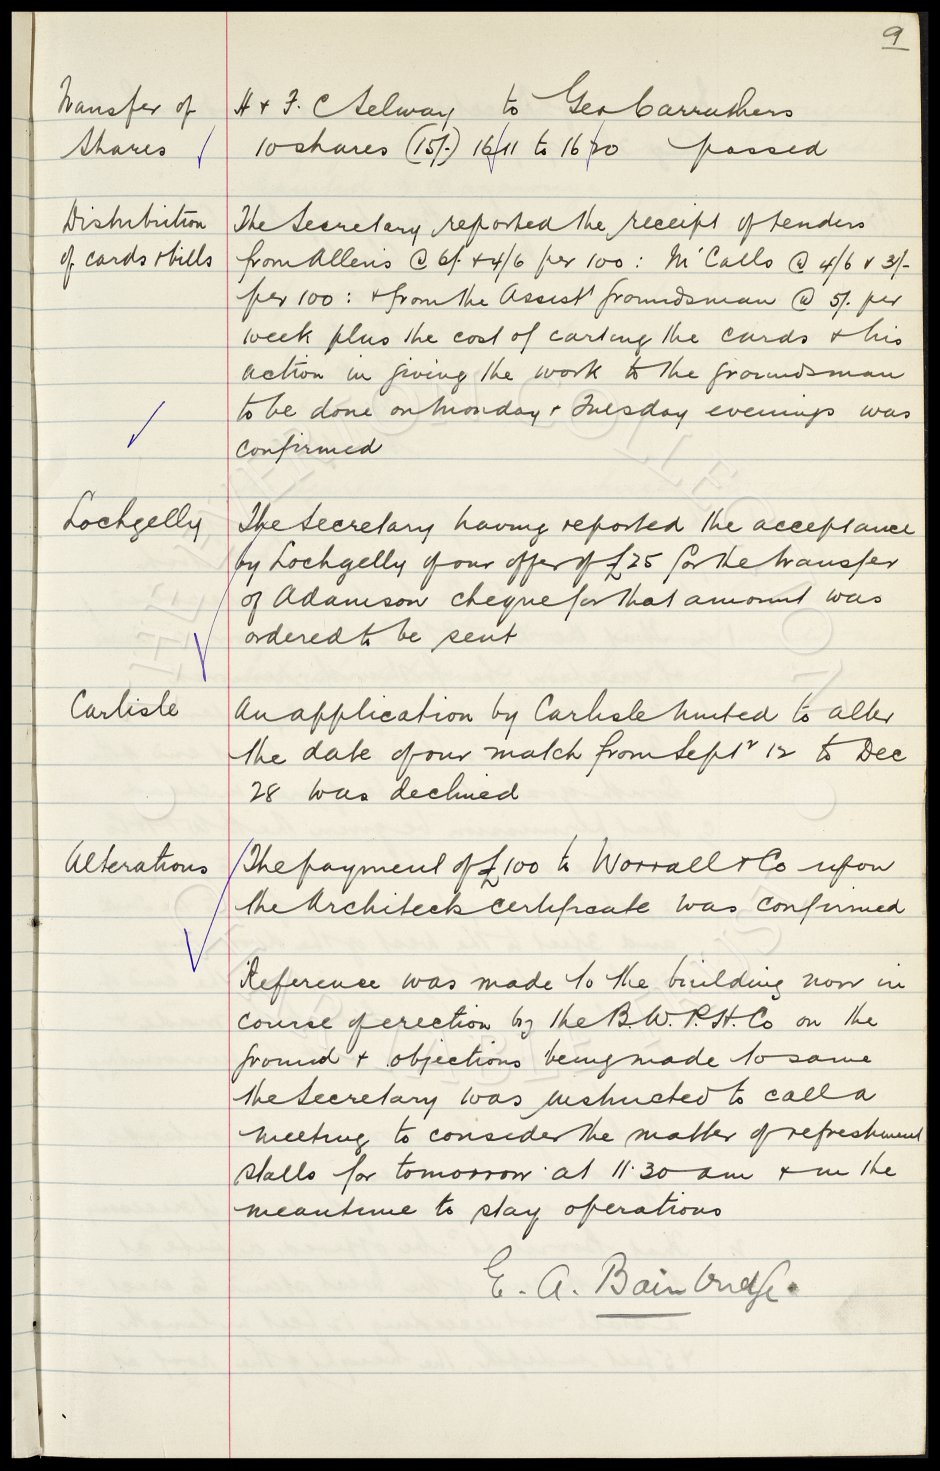 9
Transfer of H & F. C Selway to Geo Carruthers
Shares 10 shares (15/-) 1611 to 1620 passed
Distribution The Secretary reported the receipt of tenders
of cards & bills from Allens @ 6/- & 4/6 per 100: McCalls @ 4/6 & 3/-
per 100: & from the Assist groundsman @ 5/- per
week plus the cost of carting the cards & his
action in giving the work to the groundsman
to be done on Monday & Tuesday evenings was
confirmed
Lochgelly The Secretary having reported the acceptance
by Lochgelly of our offer of £25 for the transfer
of Adamson cheque for that amount was
ordered to be sent
Carlisle An application by Carlisle United to alter
the date of our match from Septr 12 to Dec
28 was declined
Alterations The payment of £100 to Worrall & Co upon
the Architects certificate was confirmed
Reference was made to the building now in
course of erection by the B.W.P.H. Co on the
ground & objections being made to same
the Secretary was instructed to call a
meeting to consider the matter of refreshment
stalls for tomorrow at 11.30 am & in the
meantime to stay operations
E. A. Bainbridge.
THE EVERTON COLLECTION